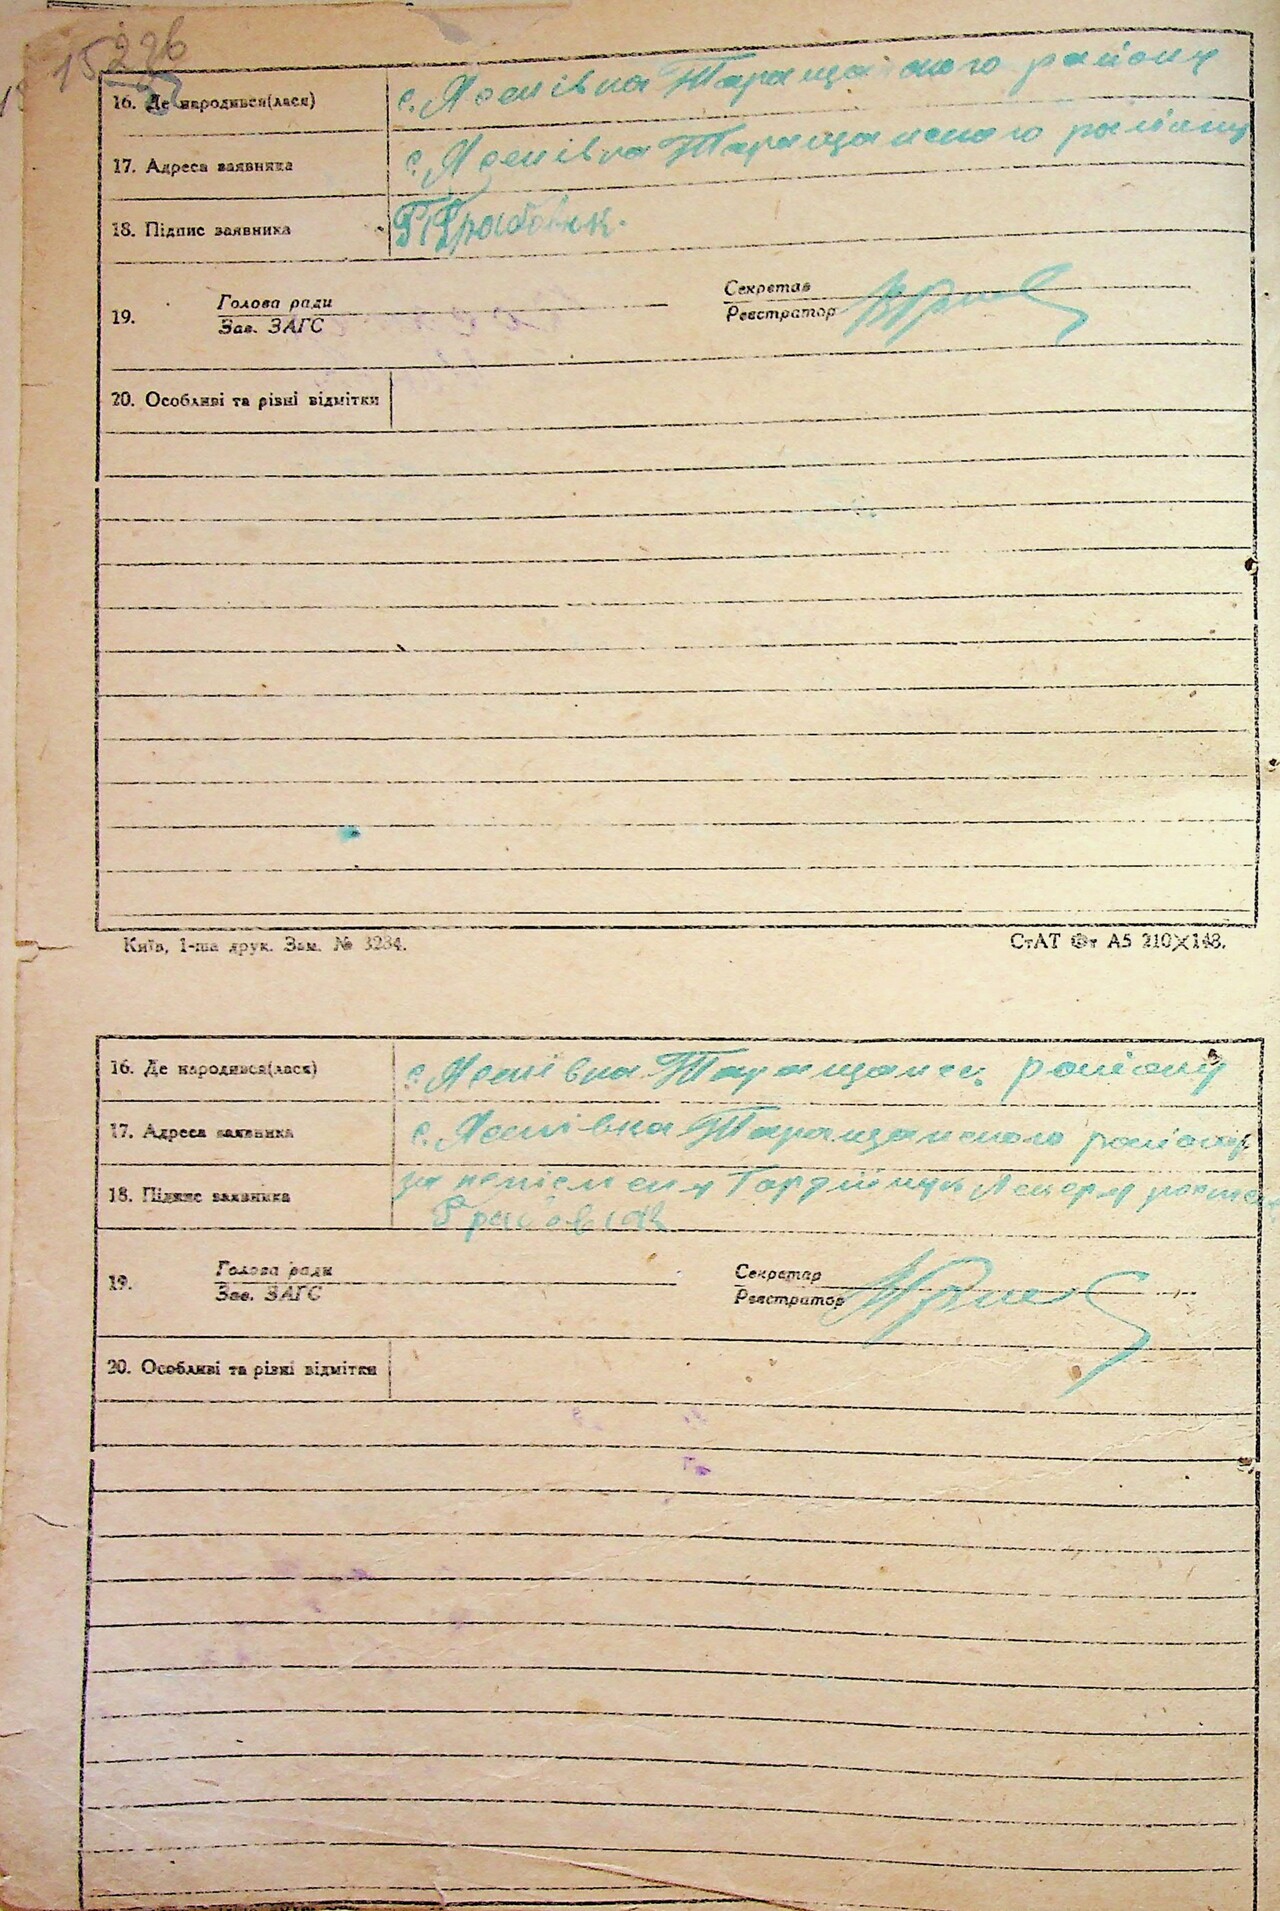 15226
16. Де народився(лася) с. Лосятівка Таращанского району
17. Адреса заявника Таращанского району
18. Підпис заявника Грабовик.
19. Голова ради
Зав. ЗАГС
Секретар
Реєстратор
20. Особливі та різні відмітки
Київ, 1-ша друк. Зам. № 3234.
СтАТ Фт А5 210×148.
16. Де народився(лася) с. Таращанск. району
17. Адреса заявника с. Таращанского району
18. Підпис заявника за неписьмену Гордійчук
Грабовик
19. Голова ради
Зав. ЗАГС
Секретар
Реєстратор
20. Особливі та різні відмітки